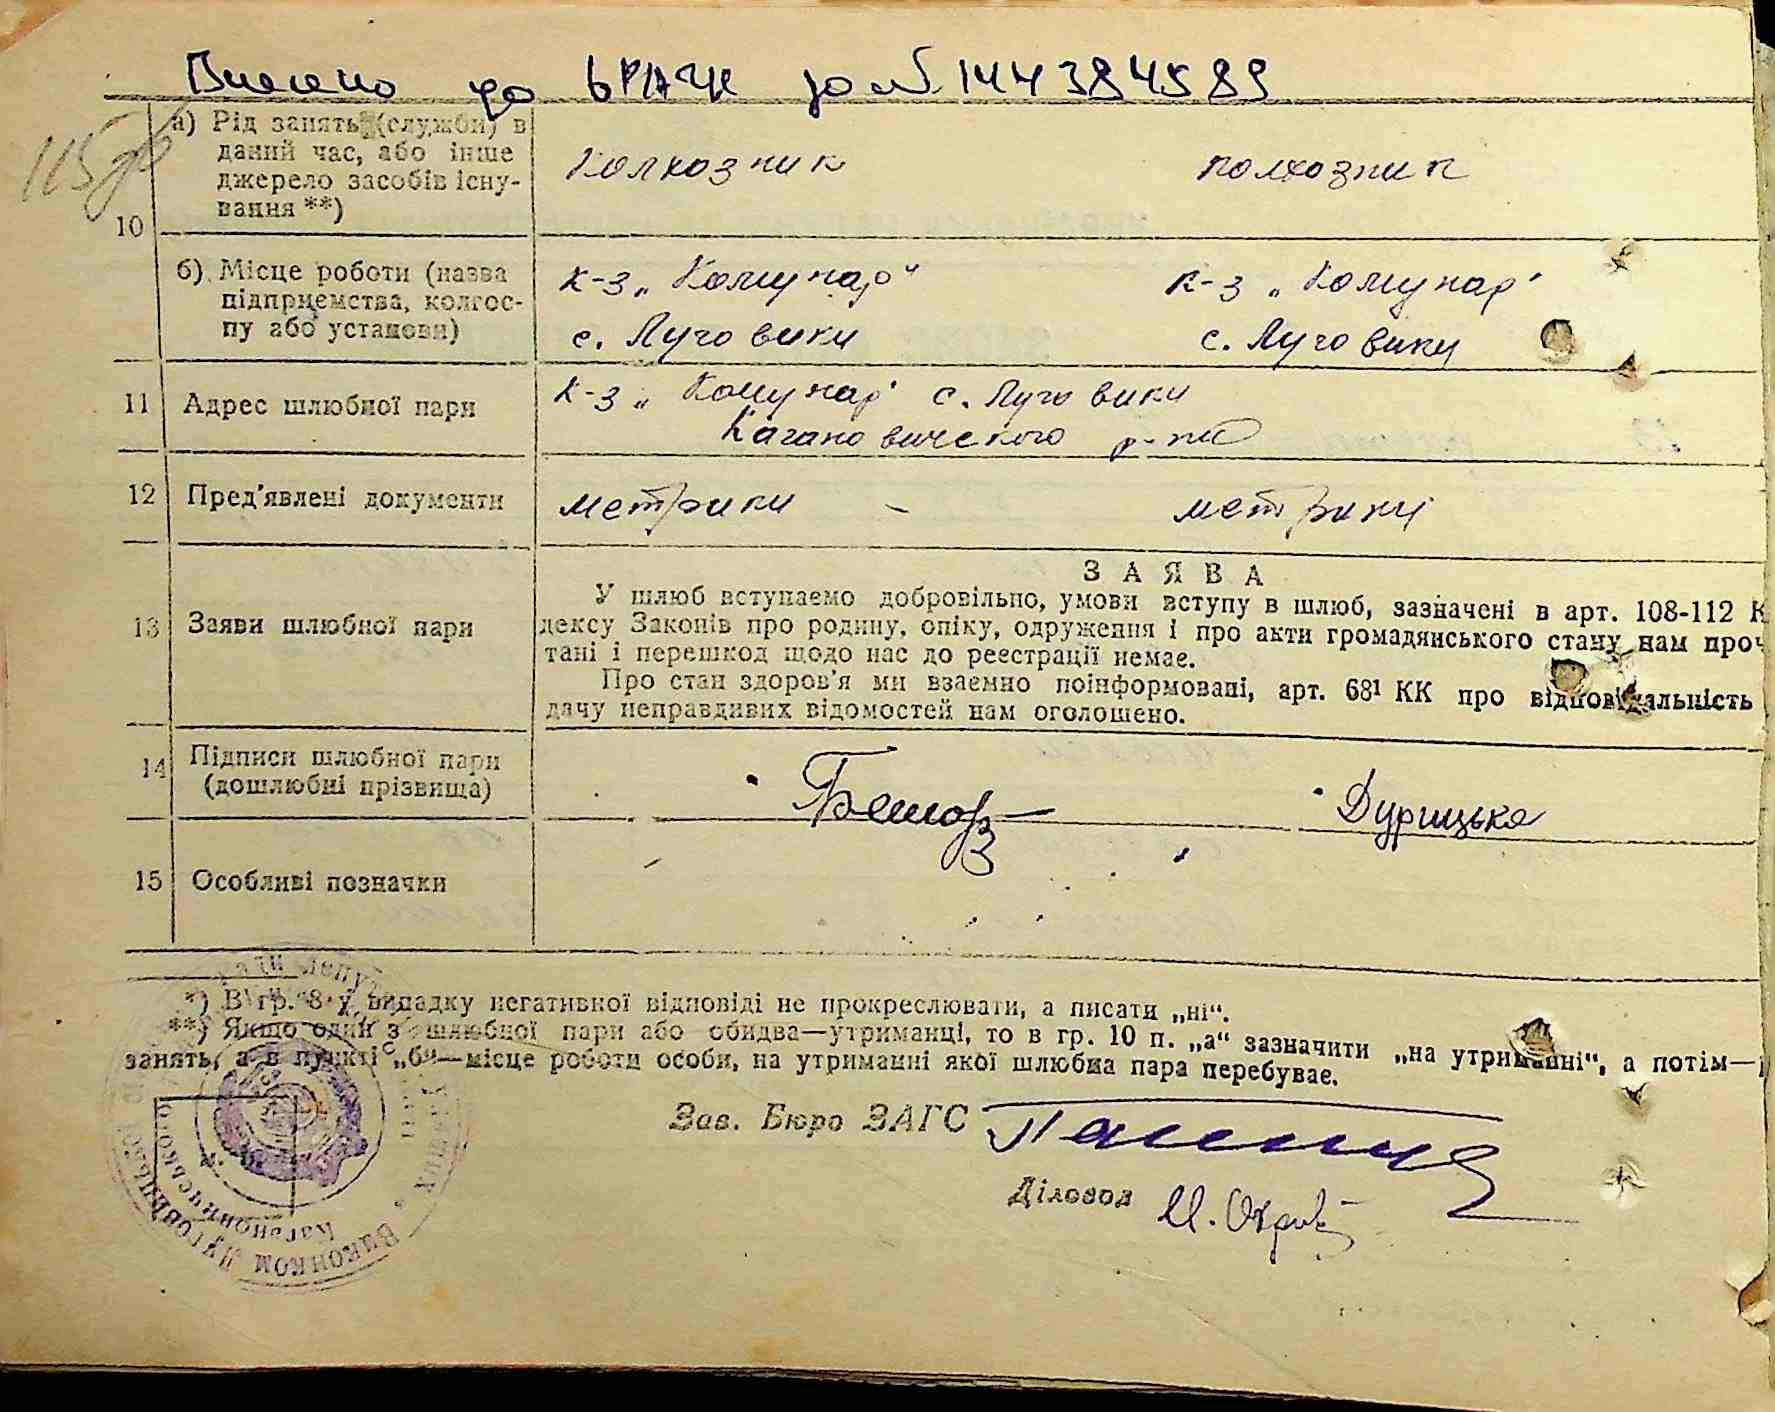 Внесено до ДРАЦС за № 144384589
115
10
а) Рід занять (служби) в
даний час, або інше
джерело засобів існу-
вання **)
колхозник колхозник
б) Місце роботи (назва
підприємства, колгос-
пу або установи)
к-з „Комунар" к-з „Комунар"
с. Луговики с. Луговики
11 Адрес шлюбної пари
к-з „Комунар" с. Луговики
Кагановичского р-на
12 Пред'явлені документи метрики - метрики
13 Заяви шлюбної пари
ЗАЯВА
У шлюб вступаємо добровільно, умови вступу в шлюб, зазначені в арт. 108-112 К
дексу Законів про родину, опіку, одруження і про акти громадянського стану нам проч
тані і перешкод щодо нас до реєстрації немає.
Про стан здоров'я ми взаємно поінформовані, арт. 68¹ КК про відповідальність
дачу неправдивих відомостей нам оголошено.
14 Підписи шлюбної пари
(дошлюбні прізвища)
Дурицька
15 Особливі позначки
*) В гр. 8 у випадку негативної відповіді не прокреслювати, а писати „ні".
**) Якщо один з шлюбної пари або обидва—утриманці, то в гр. 10 п. „а" зазначити „на утриманні", а потім—
занять, а в пункті „б"—місце роботи особи, на утриманні якої шлюбна пара перебуває.
Зав. Бюро ЗАГС
Діловод
Виконком Луговицької
Кагановичського